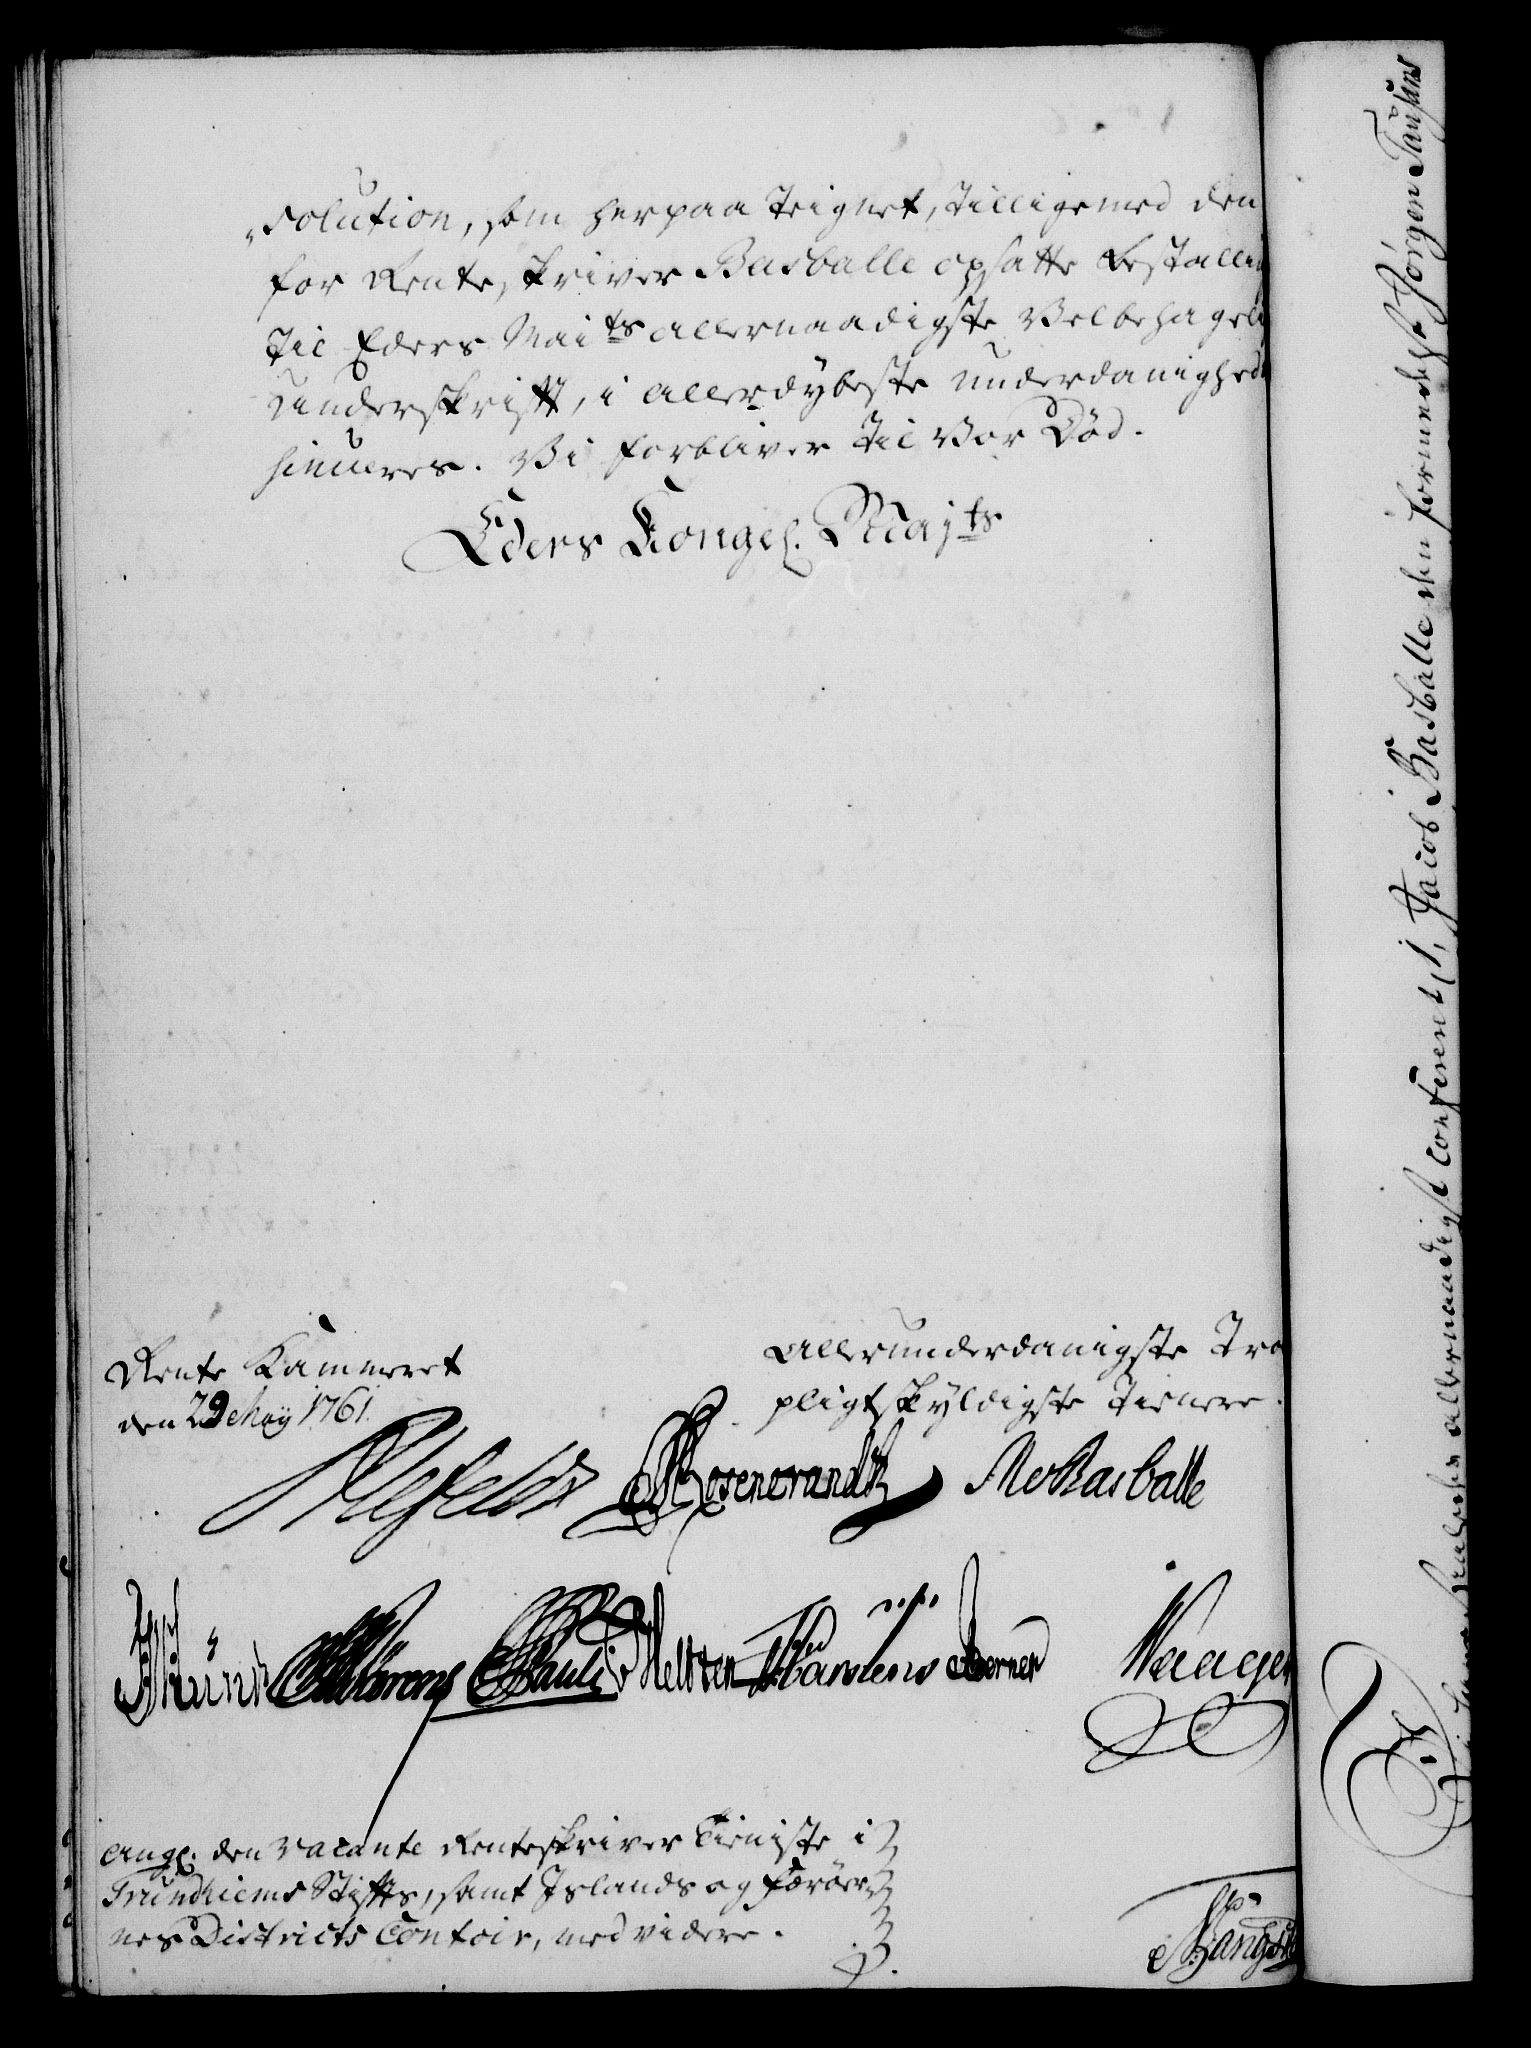 „solution, som herpaa teignet, tilligemed den
for Rente-skriver Basballe opsatte bestalling
til Eders Maits allernaadigste Velbehagelig
Underskrift, i allerdybeste underdanighed
hinveres. Vi forbliver til Vor Død.
Eders Kongel. Majts
Rente Kammeret
den 29 May 1761.
Allerunderdanigste Tro
pligtskyldigste Tienere.
Ahlefeldt Rosencrantz Mo Basballe
Pauli Meltzen Karstens Berner Waager
Angl. den vacante Renteskriver Tieniste i
Trundhiems Stifts, samt Islands og Færöer-
nes Districts Contoir, med videre.
allernaadigst conferent, Jacob Basballe den formeedelst Jörgen Tausans